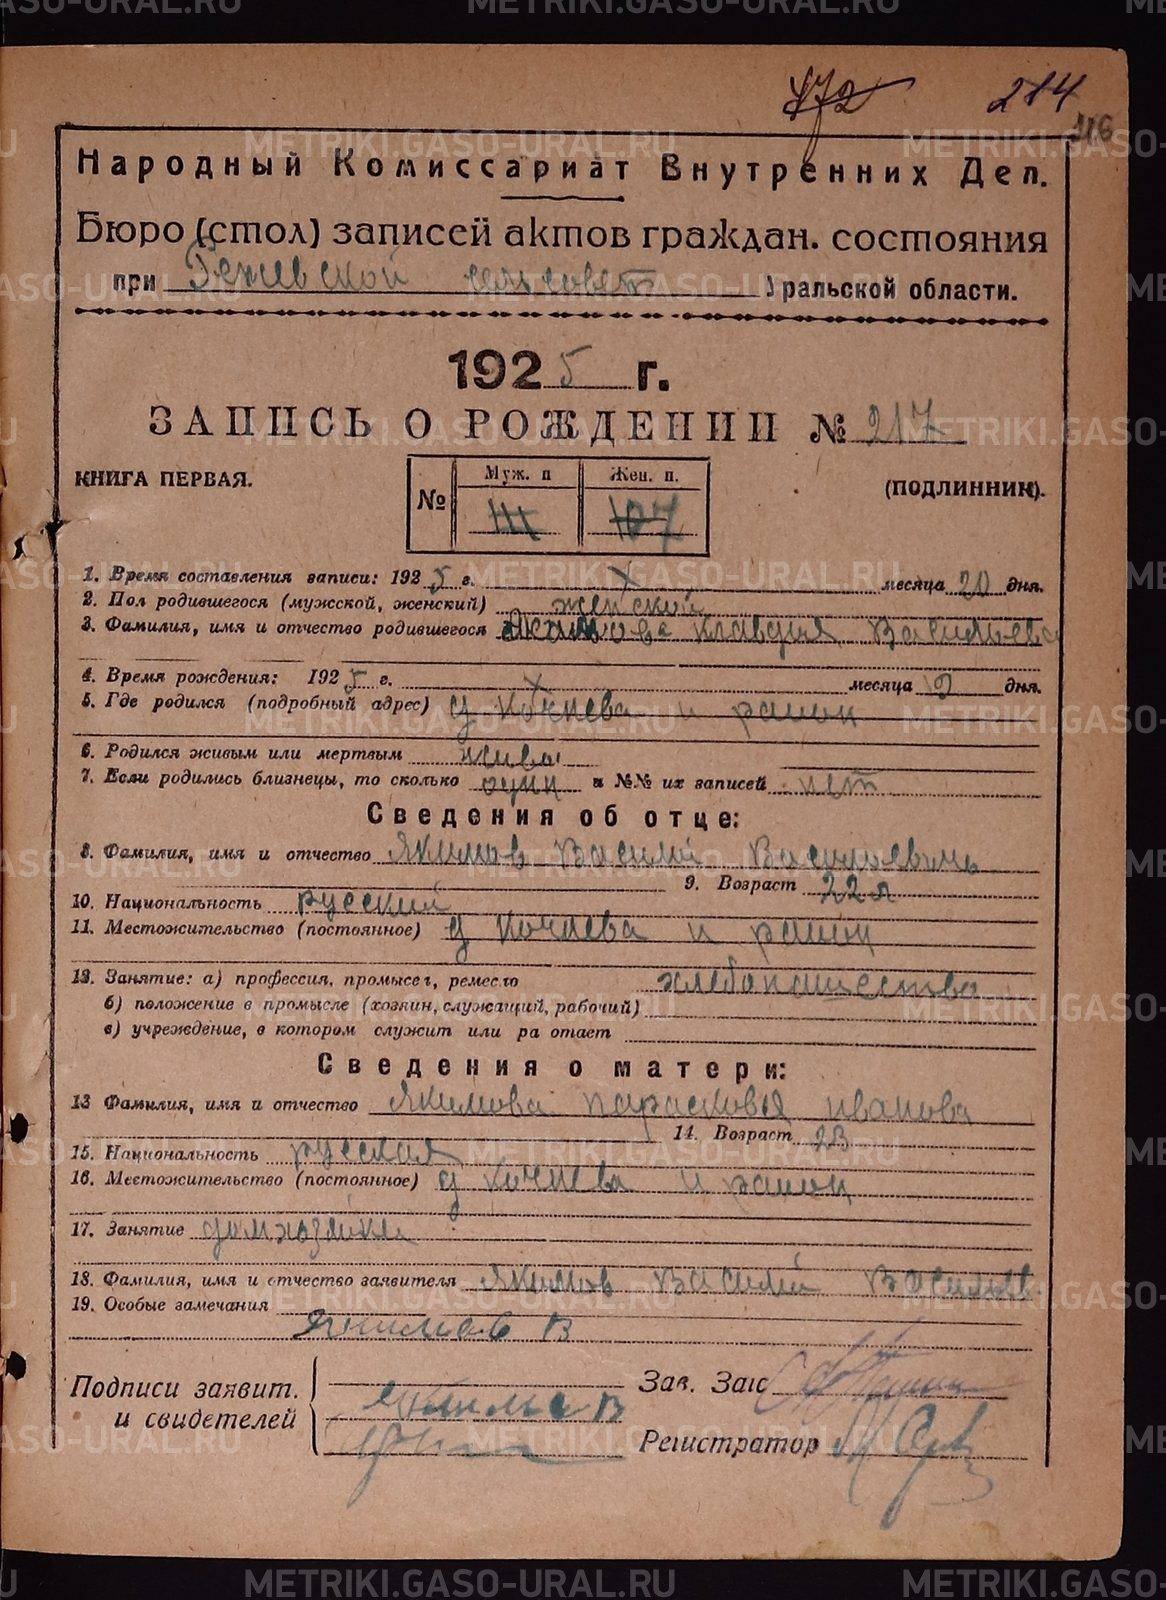 METRIKI.GASO-URAL.RU
172 214
116
Народный Комиссариат Внутренних Дел.
Бюро (стол) записей актов граждан. состояния
при Режевской сельсовет Уральской области.
1925 г.
ЗАПИСЬ О РОЖДЕНИИ № 217
КНИГА ПЕРВАЯ. (ПОДЛИННИК).
№ Муж. п Жен. п.
107
1. Время составления записи: 1925 г. X месяца 20 дня.
2. Пол родившегося (мужской, женский) женской
3. Фамилия, имя и отчество родившегося Якимова Клавдия Васильева
4. Время рождения: 1925 г. X месяца дня.
5. Где родился (подробный адрес) д Кочнева и район
6. Родился живым или мертвым жива
7. Если родились близнецы, то сколько один и №№ их записей нет
Сведения об отце:
8. Фамилия, имя и отчество Якимов Василий Васильевичь
9. Возраст 22 л
10. Национальность русский
11. Местожительство (постоянное) д Кочнева и район
12. Занятие: а) профессия, промысел, ремесло хлебопашество
б) положение в промысле (хозяин, служащий, рабочий)
в) учреждение, в котором служит или ра отает
Сведения о матери:
13 Фамилия, имя и отчество Якимова Парасковья Иванова
14. Возраст 23
15. Национальность русская
16. Местожительство (постоянное) д Кочнева и район
17. Занятие домхозяйка
18. Фамилия, имя и отчество заявителя Якимов Василий Васильев.
19. Особые замечания
Якимов В
Подписи заявит. и свидетелей
Якимов В
Зав. Загс
Регистратор
METRIKI.GASO-URAL.RU